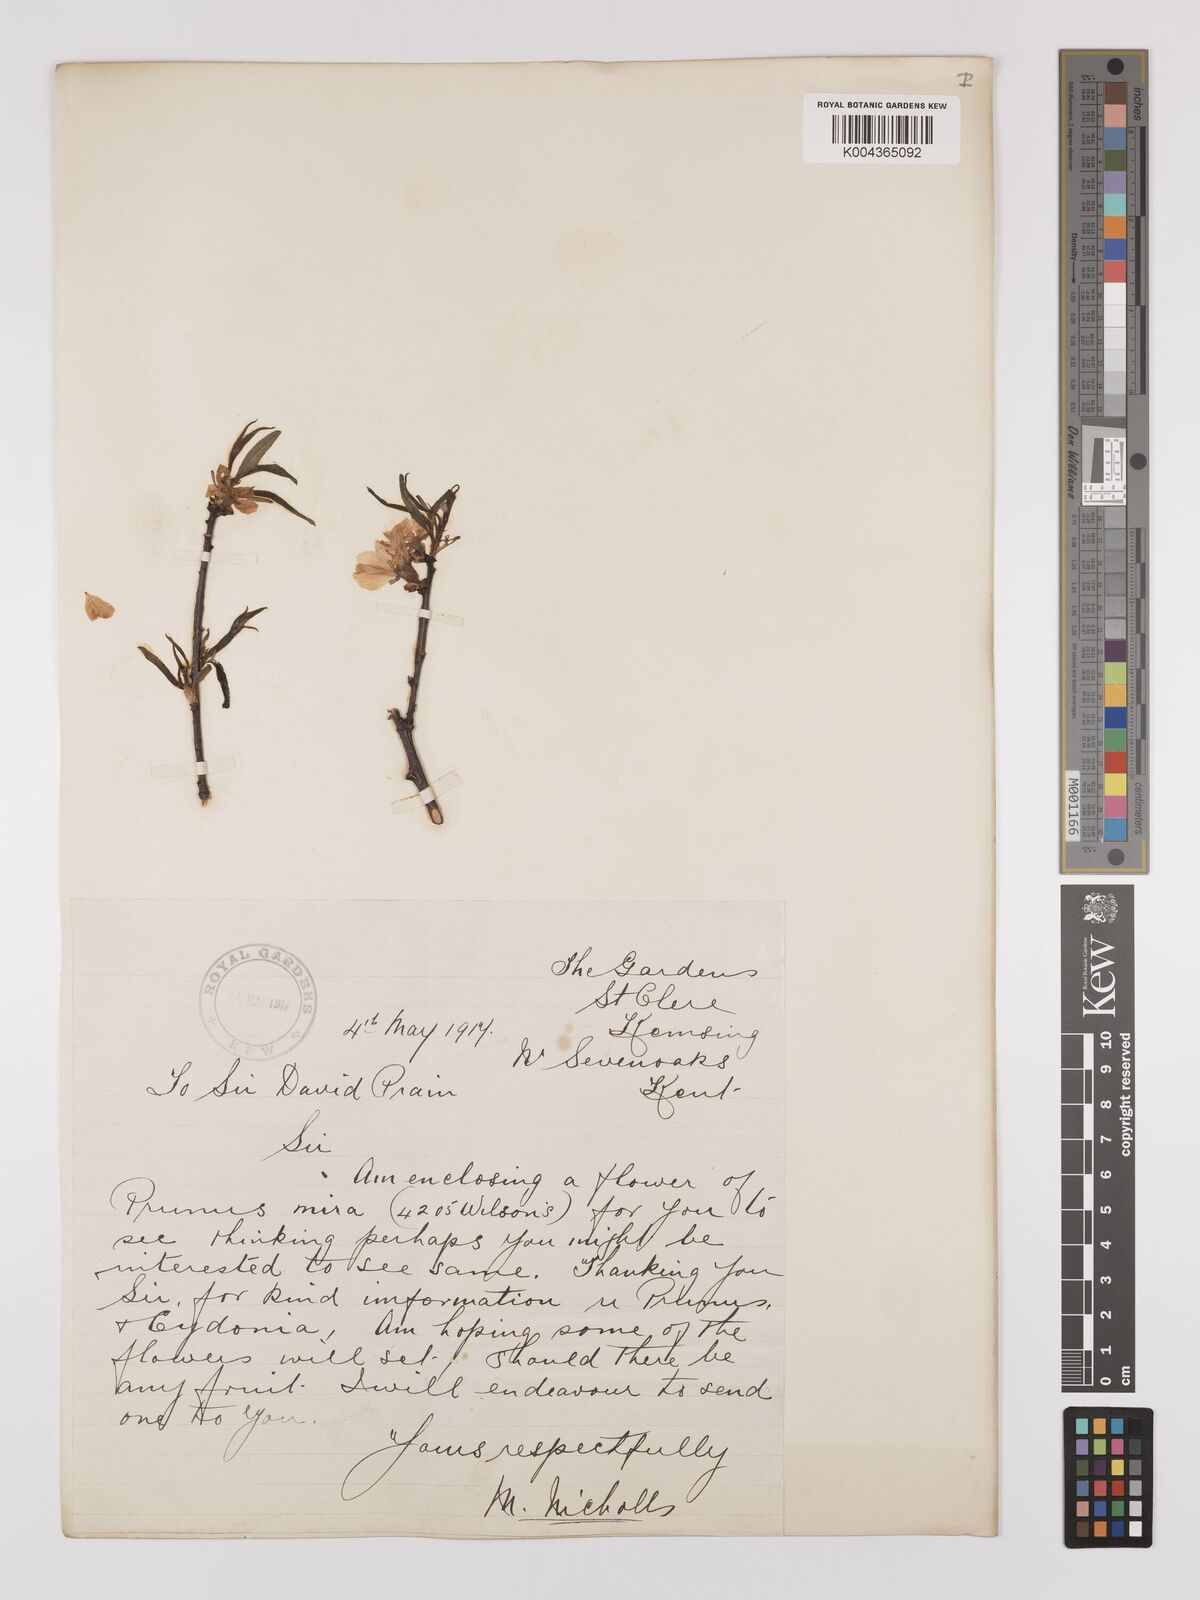 I
ROYAL BOTANIC GARDENS KEW
K004365092
ROYAL GARDENS
KEW
The Gardens
St Clere
Kemsing
Nr Sevenoaks
Kent
4th May 1917.
To Sir David Prain
Sir
Am enclosing a flower of
Prunus mira (4205 Wilson's) for you to
see thinking perhaps you might be
interested to see same. Thanking you
Sir, for kind imformation re Prunus,
& Cydonia, Am hoping some of the
flowers will set, should there be
any fruit I will endeavour to send
one to you.
Yours respectfully
M. Nicholls
inches
Density
Don Williams
centimeters
M001166
Kew
Royal Botanic Gardens
0 1 2 3 4 5 6 7 8 9 10
cm
copyright reserved